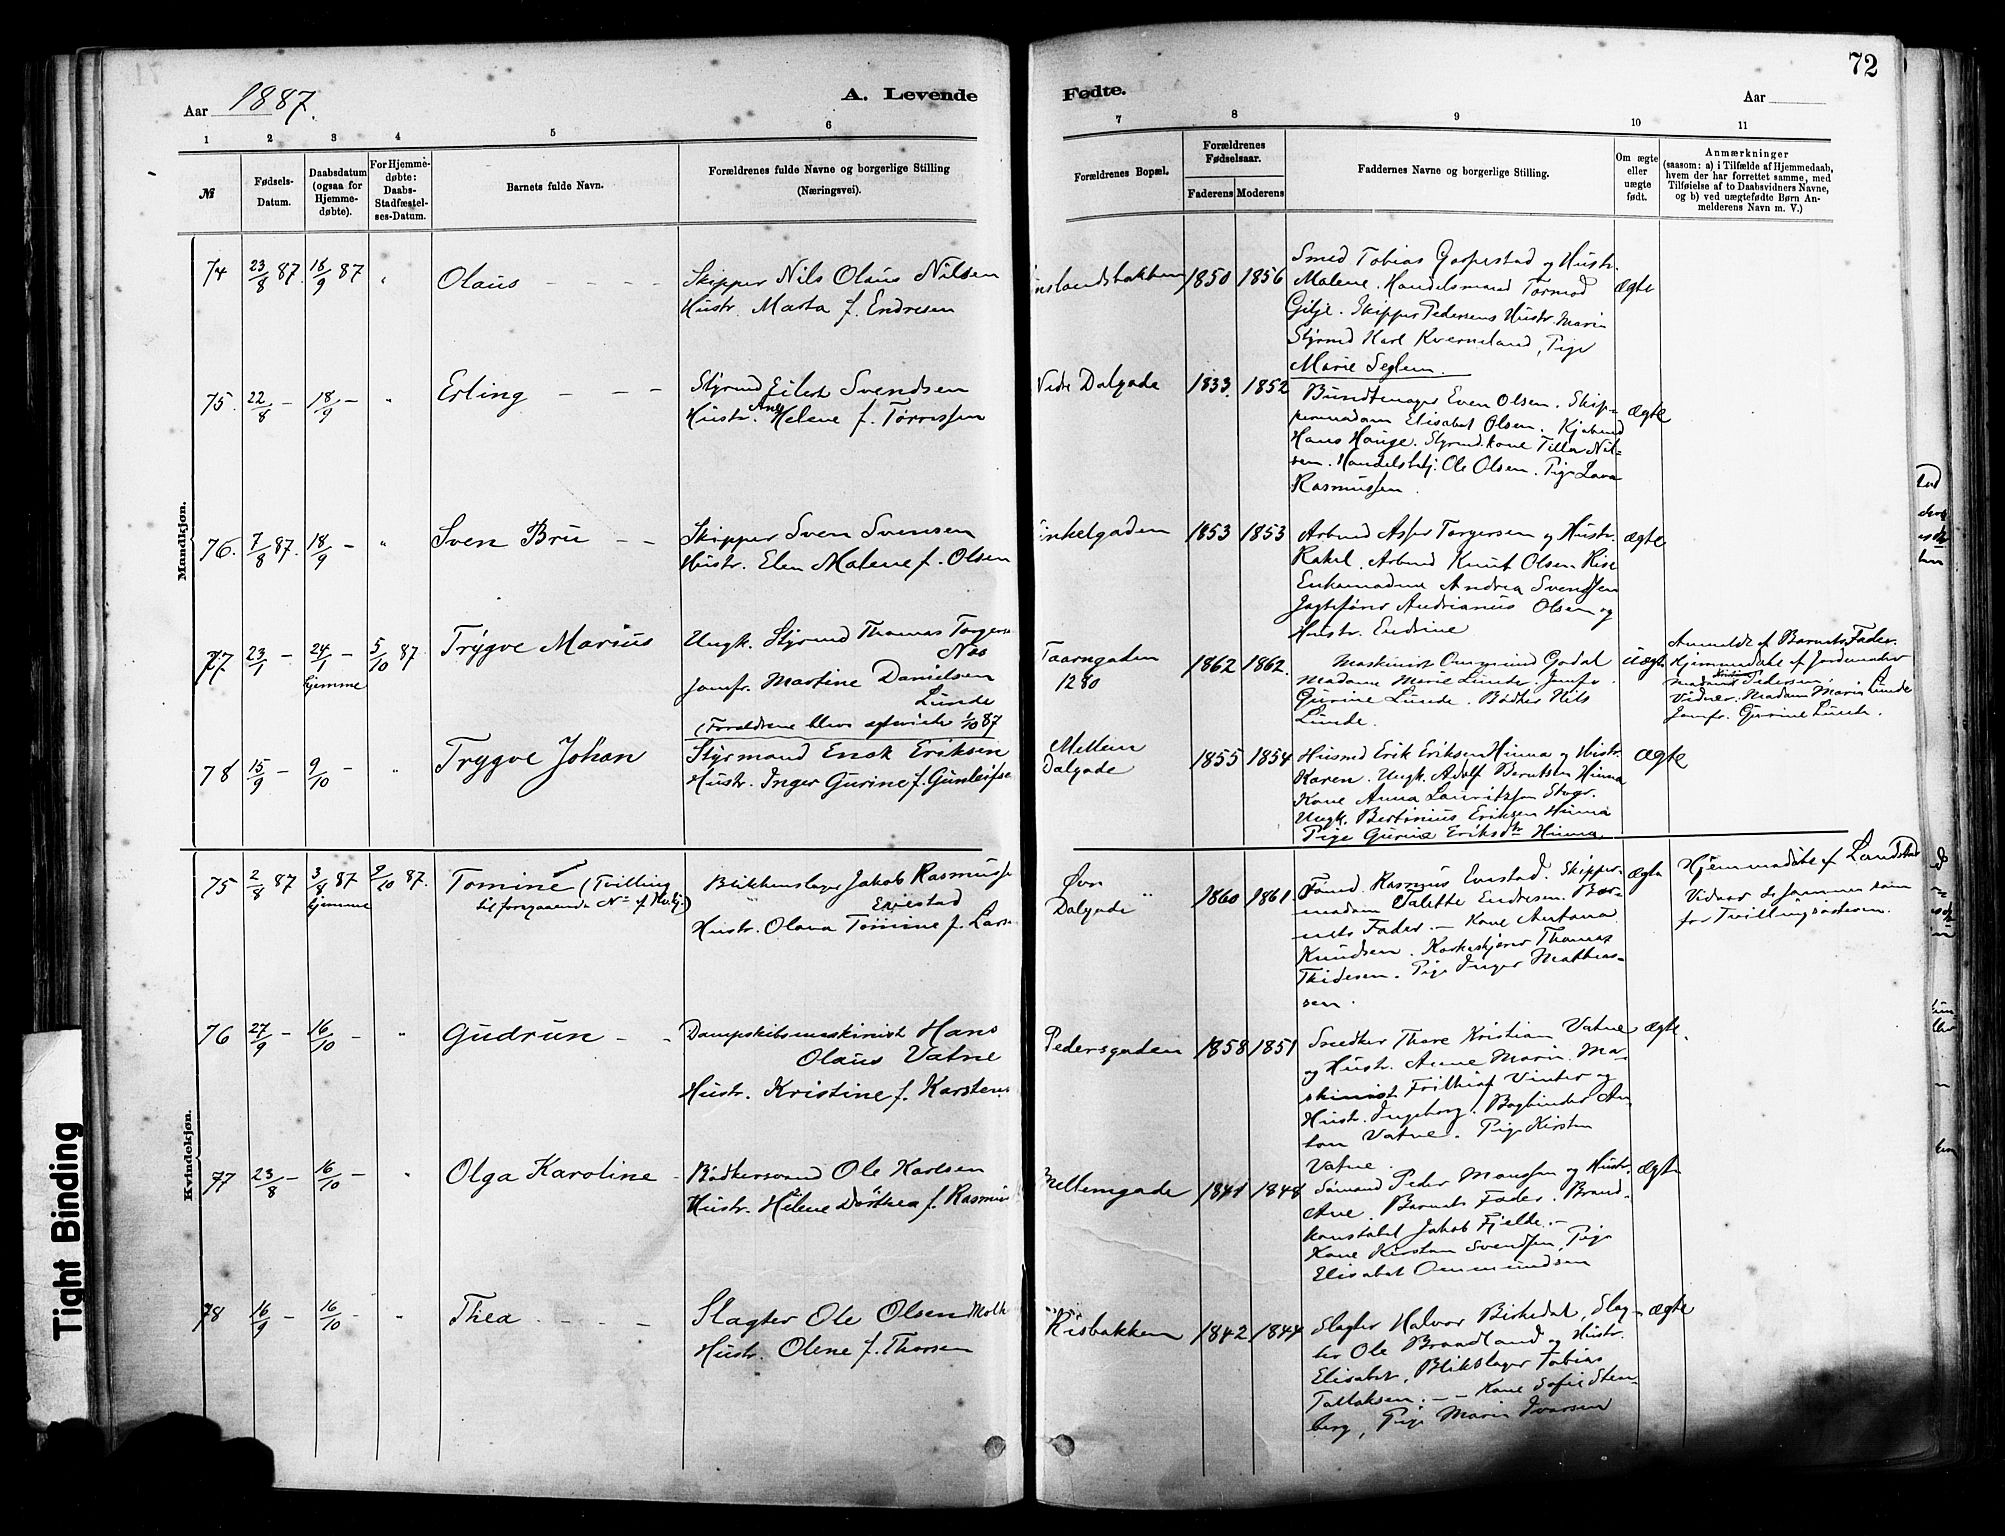 72
Aar 1887.
A. Levende
Fødte.
Aar
1 2 3 4 5 6 7 8 9 10 11
№
Fødsels-
Datum.
Daabsdatum
(ogsaa for
Hjemme-
døbte).
For Hjemme-
døbte:
Daabs-
Stadfæstel-
ses-Datum.
Barnets fulde Navn.
Forældrenes fulde Navne og borgerlige Stilling
(Næringsvei).
Forældrenes Bopæl.
Forældrenes
Fødselsaar.
Faderens Moderens
Faddernes Navne og borgerlige Stilling.
Om ægte
eller
uægte
født.
Anmærkninger
(saasom: a) i Tilfælde af Hjemmedaab,
hvem der har forrettet samme, med
Tilføielse af to Daabsvidners Navne,
og b) ved uægtefødte Børn An-
melderens Navn m. V.)
Mandkjøn.
74 23/8 87. 18/9 87 " Olaus
Skipper Nils Olaus Nilsen
Hustr. Marta f. Endresen
1850 1856
Smed Tobias Gospestad og Hustr.
Malene. Handelsmand Tormod
Gilje. Skipper Pedersens Hustr. Marie
Styrmd Karl Kverneland, Pige
Marie Seglem.
ægte
75. 22/8 – 18/9 – " Erling
Styrmd Eilert Svendsen
Hustr. Ane Helene f. Tørresen
Nedre Dalgade 1833. 1852
Bundtmager Even Olsen. Skip-
permadam Elisabet Olsen. Kjøbmd
Hans Hauge. Styrmd.kone Tilla Nil-
sen. Handelsbetj. Ole Olsen. Pige Lava
Rasmussen.
ægte
76. 7/8 87. 18/9 – " Sven Bru
Skipper Sven Svensen
Hustr. Elen Malene f. Olsen
inkelgaden 1853 1853
Arbmd Asser Torgersen og Hustr.
Rakel. Arbmd Knut Olsen Rise
Enkemadme Andrea Svendsen
Jagtefører Andrianus Olsen og
Hustr. Endrine
ægte
77 23/1 – 24/1 – hjemme 5/10 87 Trygve Marius
Ungk. Styrmd Thomas Torgers
Næs
Jomfr. Martine Danielsen
Lunde
(Forældrene blev ægteviede 1/10 87
Taarngaden
1280
1862 1862.
Maskinist Ommund Godal
Madame Marie Lunde. Jomfr.
Gurine Lunde. Bødker Nils
Lunde.
uægte
Anmeldt af Barnets Fader.
Hjemmedøbt af Jordemoder
Madame Kristine Pedersen.
Vidner. Madam Marie Lunde
Jomfr. Gurine Lunde.
78 15/9 – 9/10 – " Trygve Johan
Styrmand Enok Eriksen
Hustr. Inger Gurine f. Gunleifse
Mellem
Dalgade
1855 1854
Husmd Erik Eriksen Hinna og Hustr.
Karen. Ungk. Adolf Berntsen Hinna
Kone Anna Lauritzsen
Ungk. Bertinius Eriksen Hinna
Pige Gurine Eriksdtr Hinna
ægte
Kvindekjøn.
75 2/8 87 3/8 87 hjemme 9/10 87. Tomine (Tvilling
til foregaaende № af Kvkj.)
Blikkenslager Jakob Rasmusse
EVestad
Hustr. Olava Tomine f. Lars
Øvre
Dalgade
1860 1861
Tømd. Rasmus Evestad. Skipper-
madam Talette Endresen. Bar-
nets Fader. – Kone Antona
Knudsen. Korkeskjærer Thomas
Thidesen. Pige Inger Mathias-
sen.
ægte
Hjemmedøbt af Landstad
Vidner de samme som
for Tvillingsøsteren.
76 27/9 – 16/10 – " Gudrun
Dampskibsmaskinist Hans
Olaus Vatne
Hustr. Kristine f. Karstens
Pedersgaden 1858 1851
Snedker Thore Kristian Vatne
og Hustr. Anne Marie. Ma-
skinist Frithiof Vinter og
Hustr. Ingeborg. Bogbinder An-
ton Vatne. Pige Kirsten
Vatne.
ægte.
77 23/8 – 16/10 – " Olga Karoline
Bødkersvend Ole Karlsen
Hustr. Helene Dorthea f. Rasmus
Mellemgade 1841 1848
Sømand Peder Monssen og Hustr.
Ane. Barnets Fader. Brand-
konstabel Jakob Fjelde. –
Kone Kirsten Svendsen, Pige
Elisabet Ommundsen
ægte
78 16/9 – 16/10 – " Thea
Slagter Ole Olsen
Hustr. Olene f. Thorsen
Risbakken 1842 1844
Slagter Halvor Birkedal, Slag-
ter Ole Braadland og Hustr.
Elisabet, Blikslager Tobias
Tallaksen. – – Kone Sofie Sten-
berg, Pige Marie Ivarsen
ægte
Tight Binding